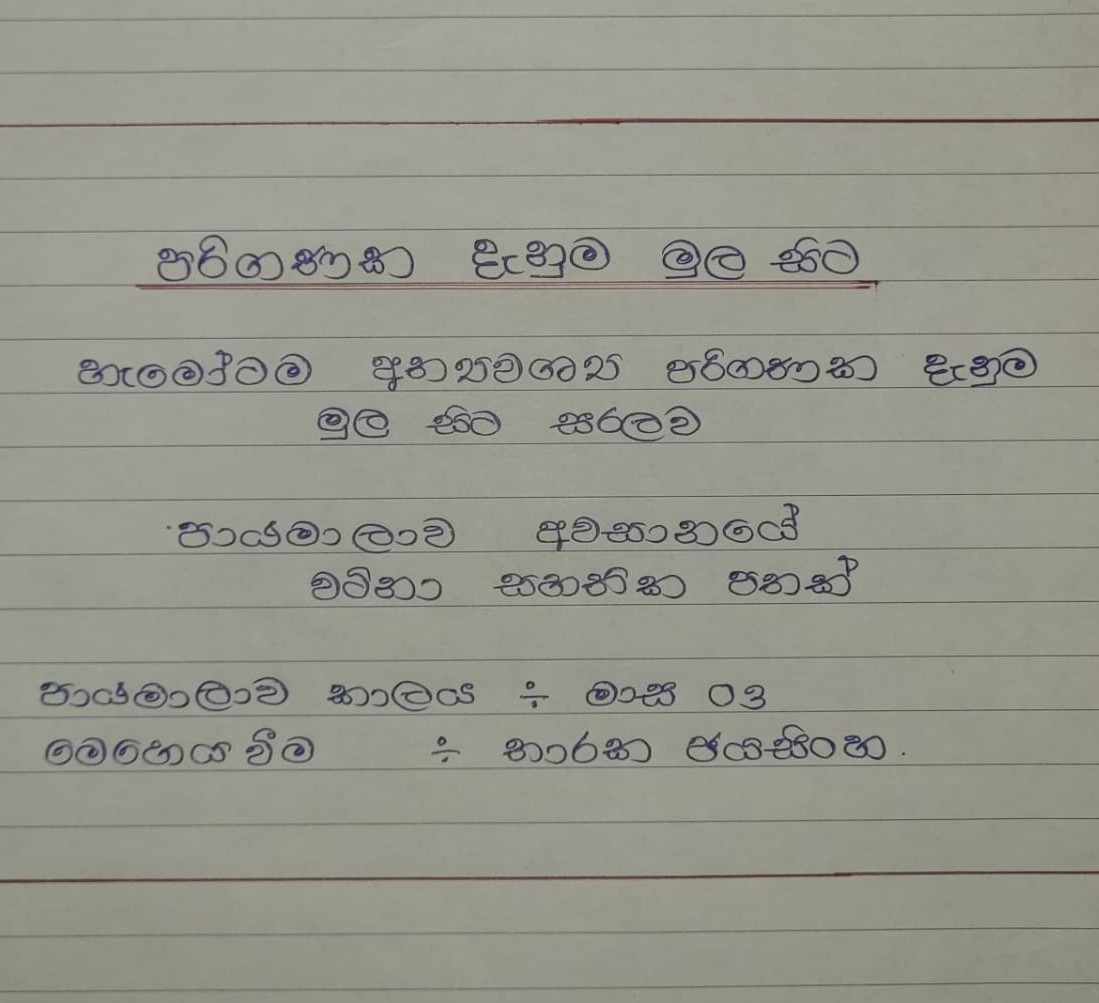 පරිගණක දැනුම මුල සිට
හැමෝටම අත්‍යවශ්‍ය පරිගණක දැනුම
මුල සිට සරලව
පාඨමාලාව අවසානයේ
වටිනා සහතික පතක්
පාඨමාලාව කාලය ÷ මාස 03
මෙහෙයවීම ÷ තාරක ජයසිංහ.